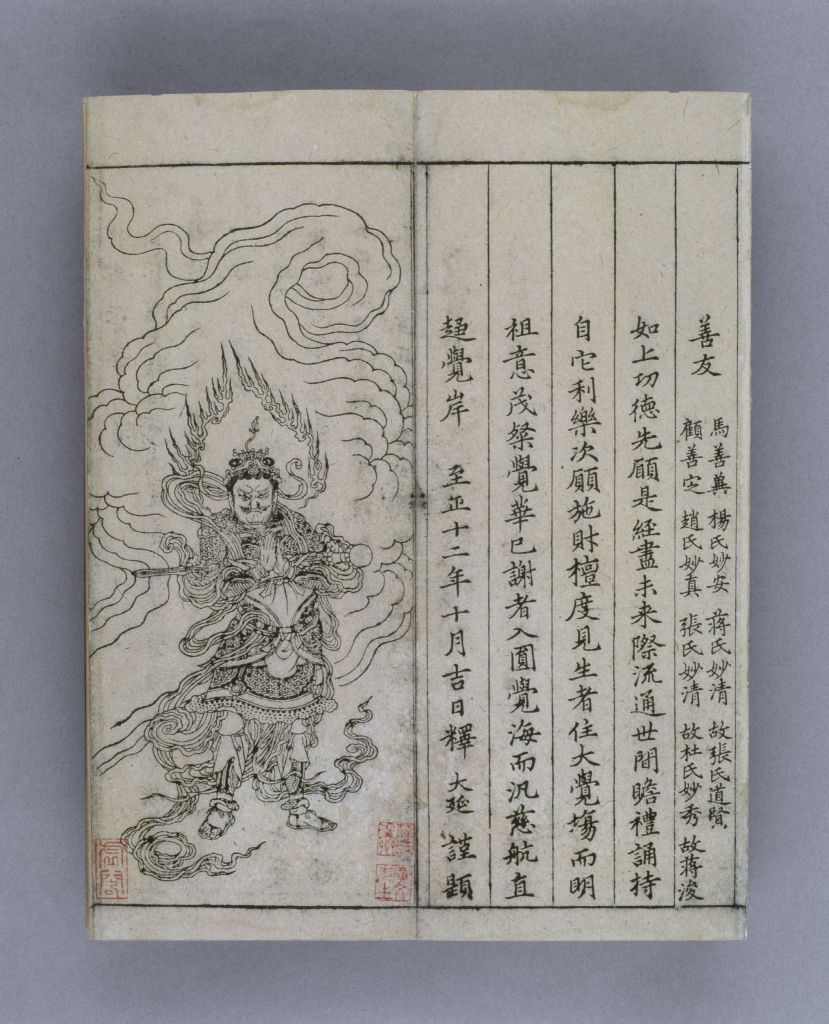 善友
馬善兾 楊氏妙安 蒋氏妙清 故張氏道賢
顧善定 趙氏妙真 張氏妙清 故杜氏妙秀 故蒋浚
如上功徳先願是經盡未来際流通世間瞻禮誦持
自它利樂次願施財檀度見生者住大覺場而明
祖意茂粲覺華已謝者入圎覺海而汎慈航直
趍覺岸 至正十二年十月吉日釋 大延 謹題